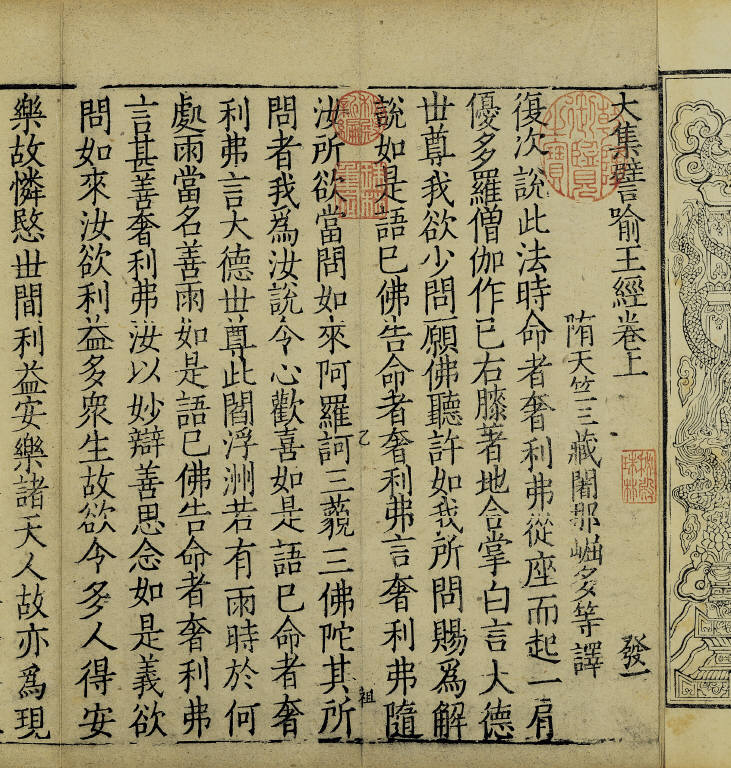 大集譬喻王經卷上 發一
隋天竺三藏闍那崛多等譯
復次說此法時命者奢利弗從座而起一肩
優多羅僧伽作已右膝著地合掌白言大德
世尊我欲少問願佛聽許如我所問賜為解
說如是語已佛告命者奢利弗言奢利弗隨
汝所欲當問如來阿羅訶三藐三佛陀其所
問者我為汝說令心歡喜如是語已命者奢
利弗言大德世尊此閻浮洲若有雨時於何
處雨當名善雨如是語已佛告命者奢利弗
言甚善奢利弗汝以妙辯善思念如是義欲
問如來汝欲利益多眾生故欲令多人得安
樂故憐愍世間利益安樂諸天人故亦為現
乙
祖